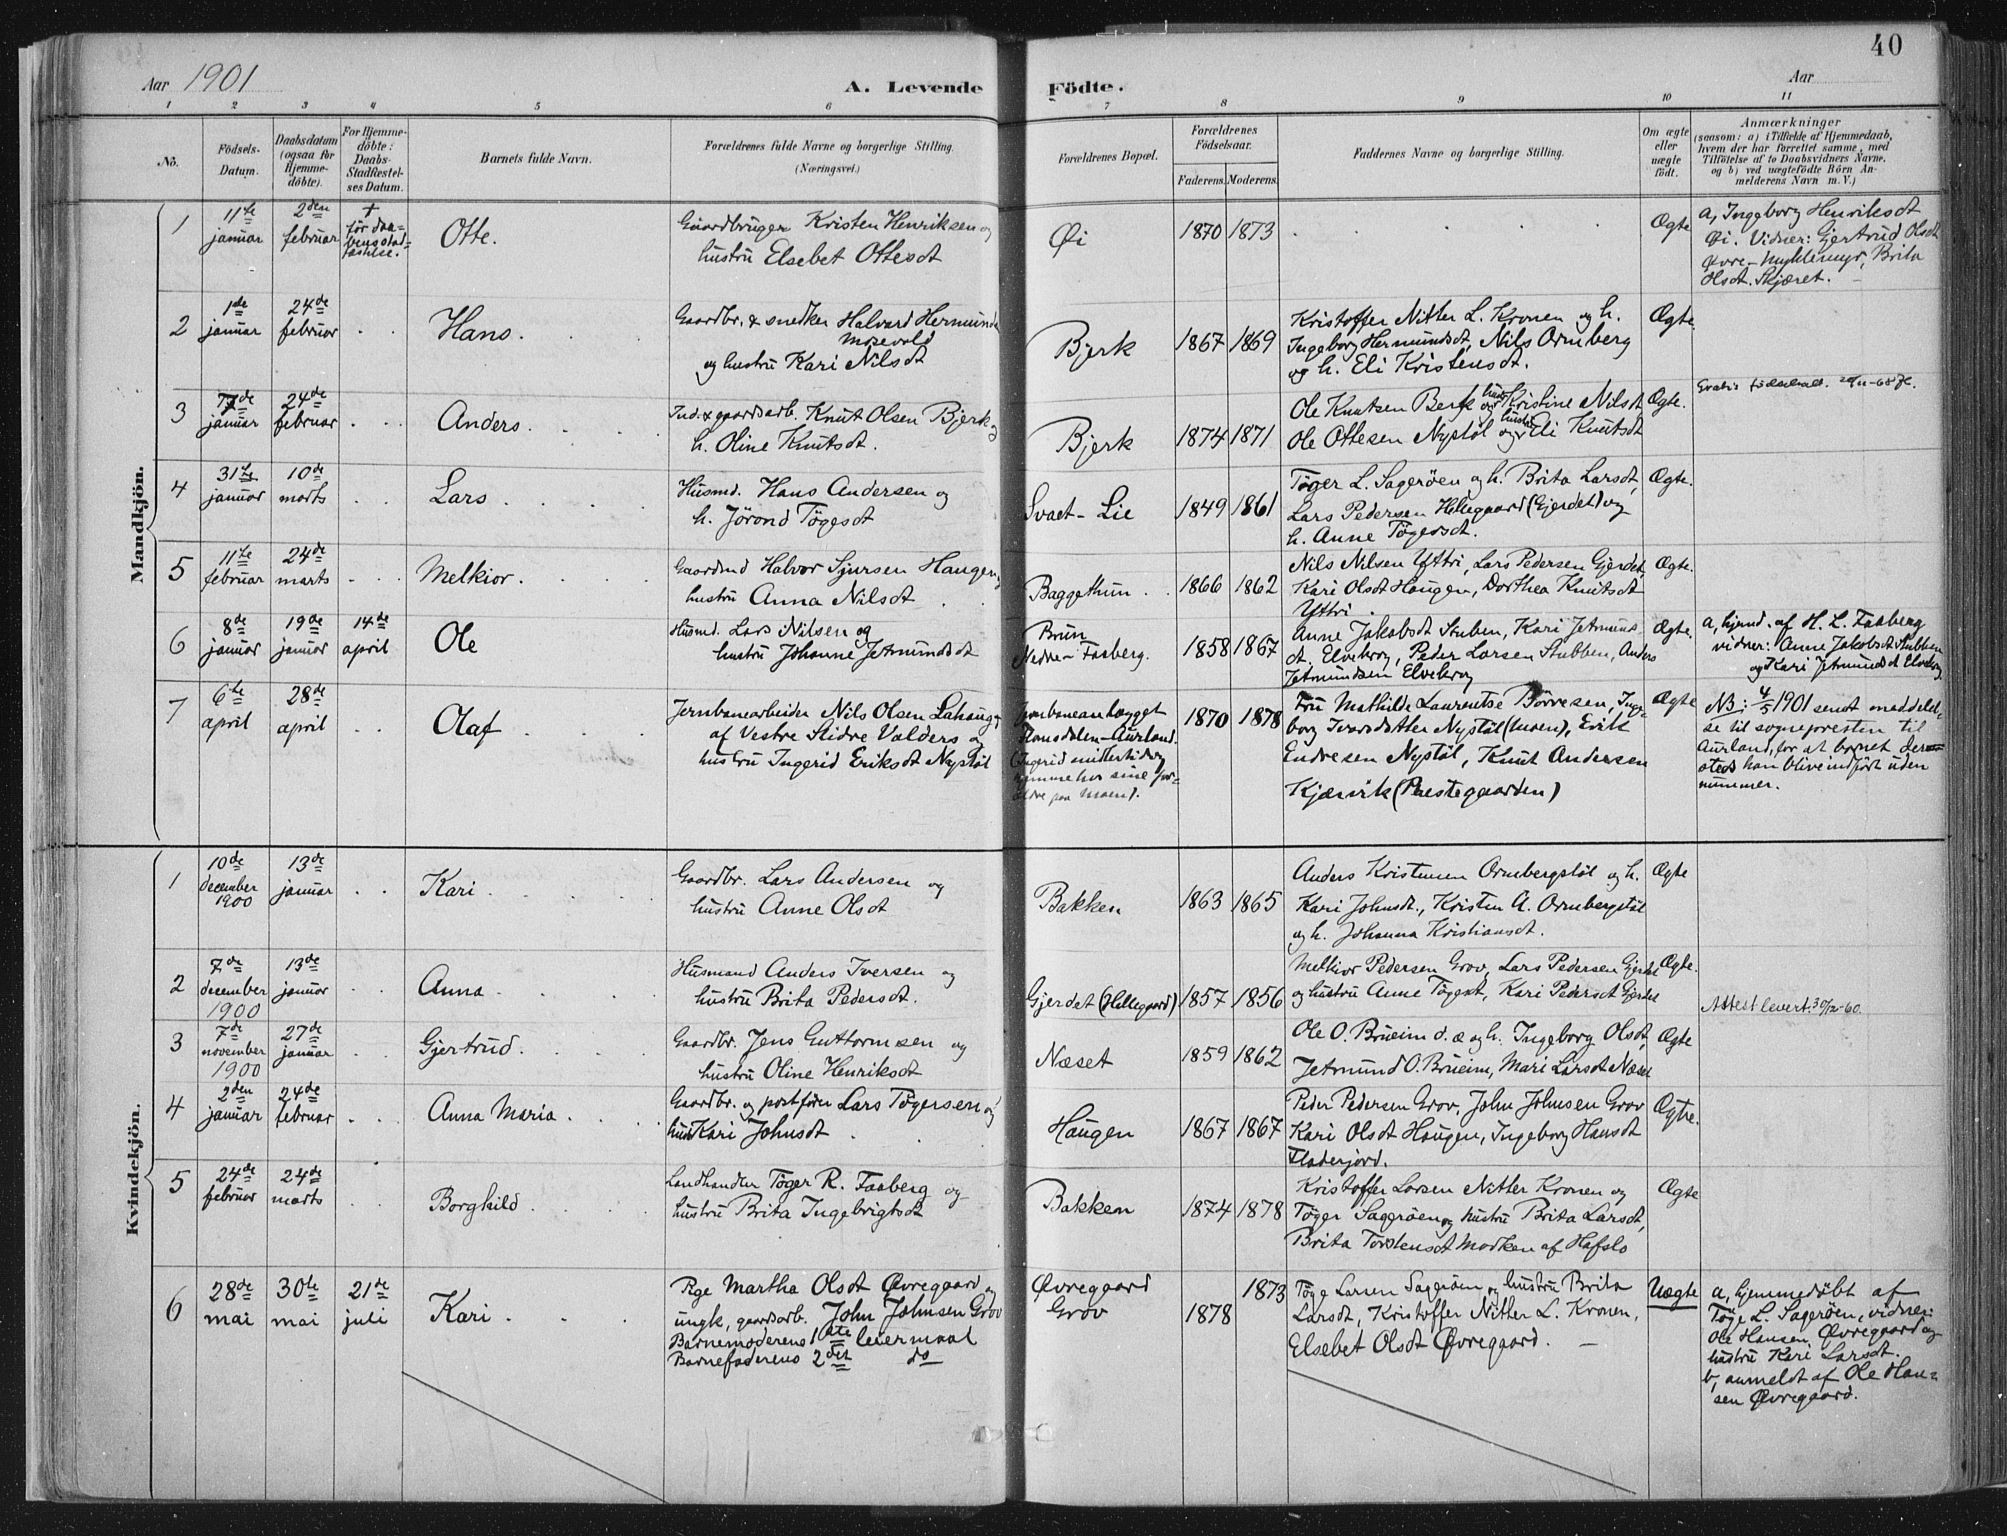 40
Aar 1901
A. Levende Födte.
Aar
1 2 3 4 5 6 7 8 9 10 11
No.
Födsels-Datum.
Daabsdatum (ogsaa for Hjemme-döbte).
For Hjemme-döbte: Daabs-Stadfæstel-ses Datum.
Barnets fulde Navn.
Forældrenes fulde Navne og borgerlige Stilling. (Næringsvei.)
Forældrenes Bopæl.
Forældrenes Födselsaar. Faderens. Moderens.
Faddernes Navne og borgerlige Stilling.
Om ægte eller uægte födt.
Anmærkninger (saasom: a) i Tilfælde af Hjemmedaab, hvem der har forrettet samme, med Tilföielse af to Daabsvidners Navne, og b) ved uægtefödte Börn An-melderens Navn m. V.)
Mandkjön.
1 11te januar 2den februar + før daa-bens stad-fæstelse. Otte. Gaardbruger Kristen Henriksen og hustru Elsebet Ottesdt Øi 1870 1873 Ægte a, Ingeborg Henriksdt Øi. Vidner: Gjertrud Olsdt Øvre-Myklemyr, Brita Olsdt. Skjæret.
2 1de januar 24de februar Hans. Gaardbr. & snedker Halvard Hermunds. Mosevold og hustru Kari Nilsdt Bjerk 1867 1869 Kristoffer Nitter L. Kronen og h. Ingeborg Hermundsdt, Nils Ormberg og h. Eli Kristensdt. Ægte.
3 7de januar 24de februar Anders. Ind. & gaardsarb. Knut Olsen Bjerk og h. Oline Knutsdt. Bjerk 1874 1871 Ole Knutsen Berk og hustru Kristine Nilsdt, Ole Ottesen Nystöl og hustru Eli Knutsdt Ægte. Gratis fødselsatt. 20/11-68
4 31te januar 10de marts Lars Husmd. Hans Andersen og h. Jörond Tögesdt Svaet-Lie 1849 1861 Töger L. Sageröen og h. Brita Larsdt, Lars Pedersen Hellegaard (Gjerdet) og h. Anne Tögersdt. Ægte.
5 11te februar 24de marts Melkior. Gaardmd Halvor Sjursen Haugen og hustru Anna Nilsdt Baggethun 1866 1862 Nils Nilsen Yttri, Lars Pedersen Gjerdet, Kari Olsdt Haugen, Dorthea Knutsdt Yttri. Ægte.
6 8de januar 19de januar 14de april Ole Husmd. Lars Nilsen og hustru Johanne Jetmundsdt Brun Nedre-Faaberg. 1858 1867 Anne Jakobsdt Stuben, Kari Jetmunds-dt. Elvekrog, Peder Larsen Stubben, Anders Jetmundsen Elvekrog Ægte. a, hjemd. af H. L. Faaberg vidner: Anne Jakobsdt Stubben og Kari Jetmundsdt Elvekrog.
7 6te april 28de april Olaf Jernbanearbeider Nils Olsen Lahaug af Vestre Slidre Valders og hustru Ingerid Eriksdt Nystöl Jernbaneanlægget Flaamsdalen-Aurland. (Ingerid midlertidig hjemme hos sine for-ældre paa Moen). 1870 1878 Fru Mathilde Laurentse Börresen, Inge-borg Ivarsdatter Nystöl (Moen), Erik Endresen Nystöl, Knut Andersen Kjærvik (Prestegaarden) Ægte NB: 4/5 1901 sendt meddelel-se til sognepresten til Aurland, for at barnet der-steds kan blive indført uden nummer.
Kvindekjön.
1 10de december 1900 13de januar Kari Gaardbr. Lars Andersen og hustru Anne Olsdt Bakken 1863 1865 Anders Kristensen Ormbergstöl og h. Kari Johnsdt., Kristen A. Ormbergstöl og h. Johanna Kristiansdt. Ægte
2 7de december 1900 13de januar Anna Husmand Anders Iversen og hustru Brita Pedersdt. Gjerdet (Hellegaard) 1857 1856 Melkior Pedersen Grov, Lars Pedersen Gjerdet og hustru Anne Tögesdt, Kari Pedersdt Gjerdet Ægte. Attest levert 30/12-60.
3 7de november 1900 27de januar Gjertrud. Gaardbr. Jens Guttormsen og hustru Oline Henriksdt Næset 1859 1862 Ole O. Brüeim d. æ og h. Ingeborg Olsdt, Jetmund O. Brüeim, Mari Larsdt Næset Ægte
4 2den januar 24de februar Anna Maria Gaardbr. og postförer Lars Tögersen og hust Kari Johnsdt Haugen 1867 1867 Peder Pedersen Grov, John Johnsen Grov Kari Olsdt Haugen, Ingeborg Hansdt Fladerjord. Ægte.
5 24de februar 24de marts Borghild Landhandler Töger R. Faaberg og hustru Brita Ingebrigtsdt Bakken 1874 1878 Kristoffer Larsen Nitter Kronen og Töger Sageröen og hustru Brita Larsdt, Brita Torstensdt Modken af Hafslo Ægte
6 28de mai 30te mai 21de juli Kari Pige Martha Olsdt Øvregaard og ungk., gaardsarb. John Johnsen Grov Barnemoderens 1ste leiermaal Barnefaderens 2det do Øvregaard Grov 1878 1873 Töge Larsen Sageröen og hustru Brita Larsdt, Kristoffer Nitter L. Kronen, Elsebet Olsdt Øvregaard. Uægte a, hjemmedöbt af Töge L. Sageröen, vidner: Ole Hansen Øvregaard og hustru Kari Larsdt. b, anmeldt af Ole Han-sen Øvregaard.